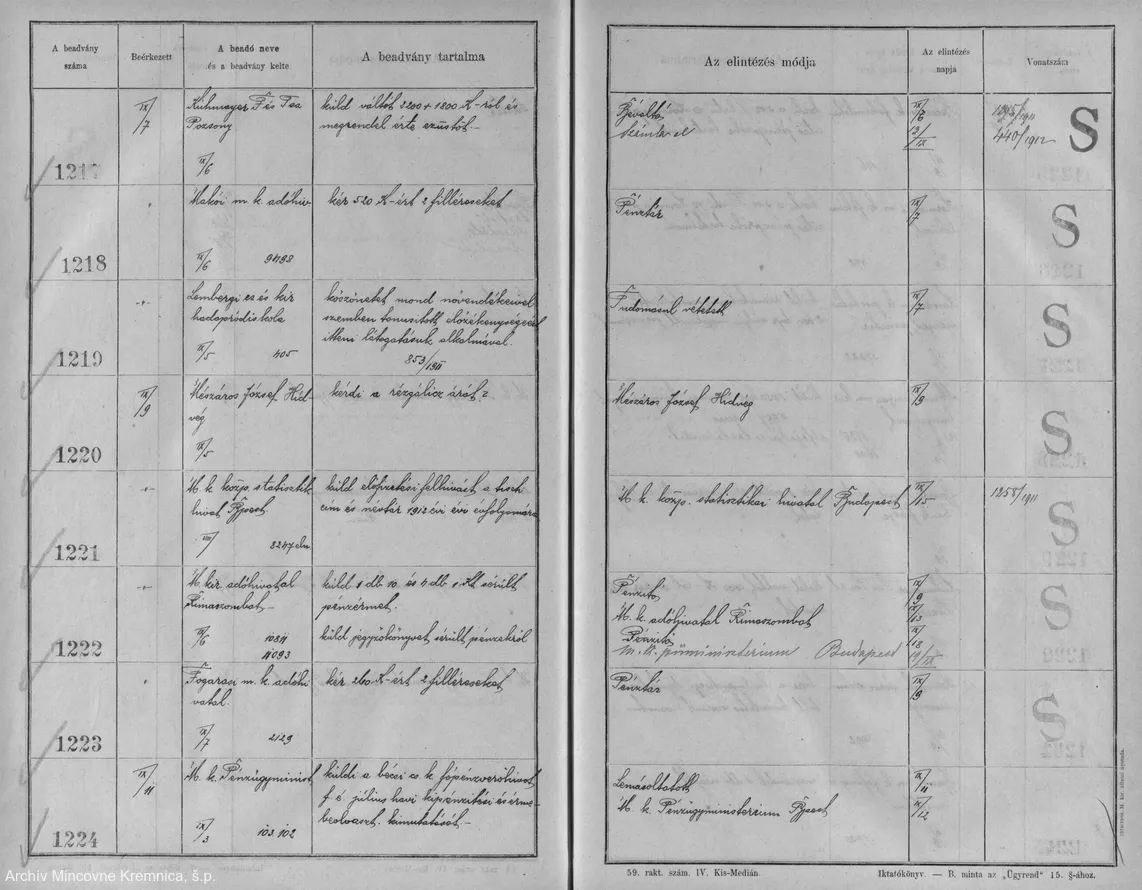 A beadvány száma
Beérkezett
A beadó neve és a beadvány kelte
A beadvány tartalma
Az elintézés módja
Az elintézés napja
Vonatszám
1217
IX/7
Kühmayer F és Tsa
Pozsony
IX/6
küld váltót 2200 + 1800 K-ról és
megrendel érte ezüstöt.
Beváltó
IX/6
12/IX
1245/1911
440/1912
S
1218
Makói m. k. adóhiv.
IX/6 9498
kér 520 K-ért 2 filléreseket
Pénztár
IX/7
S
1219
Lembergi cs és kir
hadapródiskola
IX/5 405
köszönetet mond növendékeivel
szemben tanusított előzékenységért
itteni látogatásuk alkalmával.
853/1911
Tudomásul vétetett
IX/7
S
1220
IX/9
Mészáros József Hid-
vég
IX/5
kérdi a rézgálicz árát?
Mészáros József Hidvég
IX/9
S
1221
M. k. közp. statisztik.
hivatal Bpest
VIII/ 8247
küld előfizetési felhivást a tiszti
cím és névtár 1912 évi évfolyamára
M. k. közp. statisztikai hivatal Budapest
IX/15
1255/1911
S
1222
M. kir. adóhivatal
Rimaszombat
IX/6 10811
11093
küld 1 db 10 és 4 db 1 K sérült
pénzérmet.
küld jegyzőkönyvet sérült pénzekről
Pénzitő
IX/9
M. k. adóhivatal Rimaszombat
IX/13
Pénzitő
IX/18
m. k. pü ministerium Budapest
19/IX
S
1223
Fogarasi m. k. adóhi
vatal.
IX/7 2129
kér 260 K-ért 2 filléreseket
Pénztár
IX/9
S
1224
IX/11
M. k. Pénzügyminist.
IX/3 103 102
küldi a bécsi cs. k. főpénzverőhivat.
f. é. július havi kipénzitési és érme-
beolvaszt. kimutatását.
Lemásoltatott
IX/11
M. k. Pénzügyministerium Bpest
IX/12
59. rakt. szám. IV. Kis-Medián.
Iktatókönyv. — B. minta az „Ügyrend" 15. §-ához.
Archív Mincovne Kremnica, š.p.